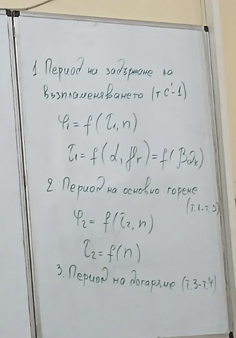 1 Период на задържане на
възпламеняването (т. c'-1)
φ₁ = f(τ₁, n)
τ₁ = f(α, φr) = f(βαk)
2. Период на основно горене
(т.1-т.3)
φ₂ = f(τ₂, n)
τ₂ = f(n)
3. Период на догаряне (т.3-т.4)